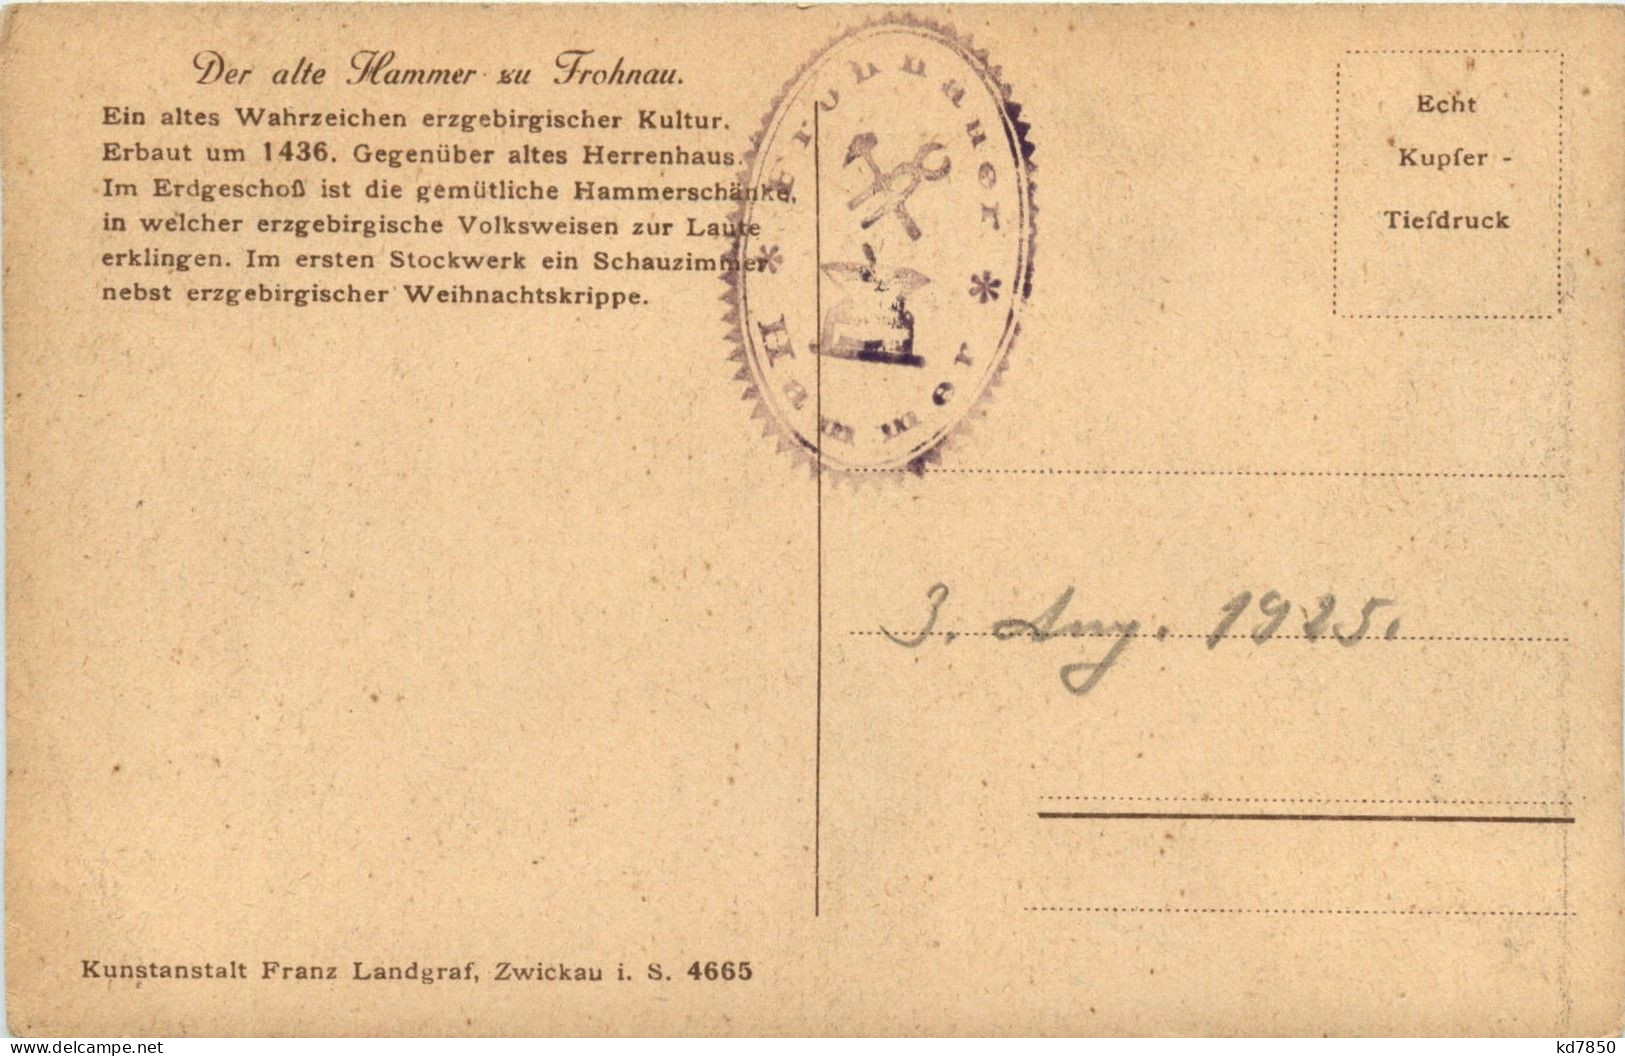 Der alte Hammer zu Frohnau.
Ein altes Wahrzeichen erzgebirgischer Kultur.
Erbaut um 1436. Gegenüber altes Herrenhaus.
Im Erdgeschoß ist die gemütliche Hammerschänke,
in welcher erzgebirgische Volksweisen zur Laute
erklingen. Im ersten Stockwerk ein Schauzimmer
nebst erzgebirgischer Weihnachtskrippe.
Frohnauer
* Hammer *
Echt
Kupfer -
Tiefdruck
3. Aug. 1925.
Kunstanstalt Franz Landgraf, Zwickau i. S. 4665
www.delcampe.net
kd7850